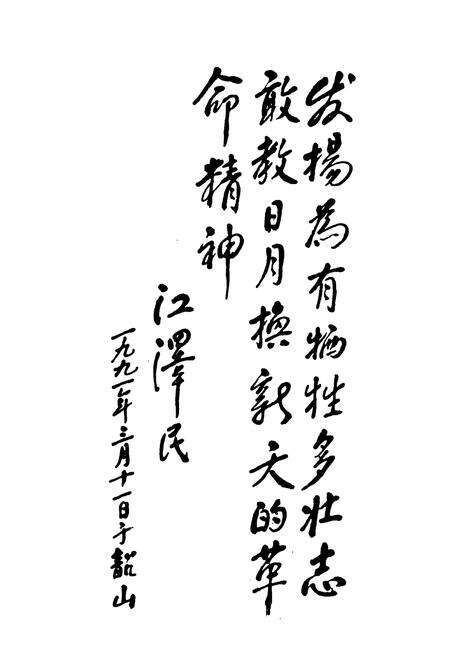 发揚為有牺牲多壮志
敢教日月换新天的革
命精神
江澤民
一九九一年三月十一日于韶山